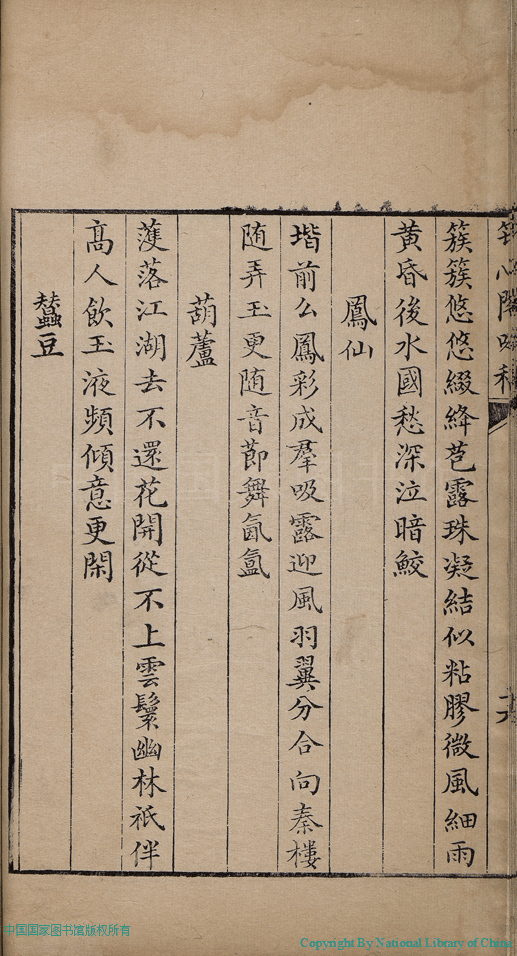 簇簇悠悠綴絳苞露珠凝結似粘膠微風細雨
黄昏後水國愁深泣暗鮫
鳳仙
堦前么鳳彩成羣吸露迎風羽翼分合向秦樓
随弄玉更随音莭舞氤氲
葫蘆
濩落江湖去不還花開從不上雲鬟幽林祇伴
髙人飲玉液頻傾意更閑
蠶豆
中国国家图书馆版权所有
Copyright By National Library of China